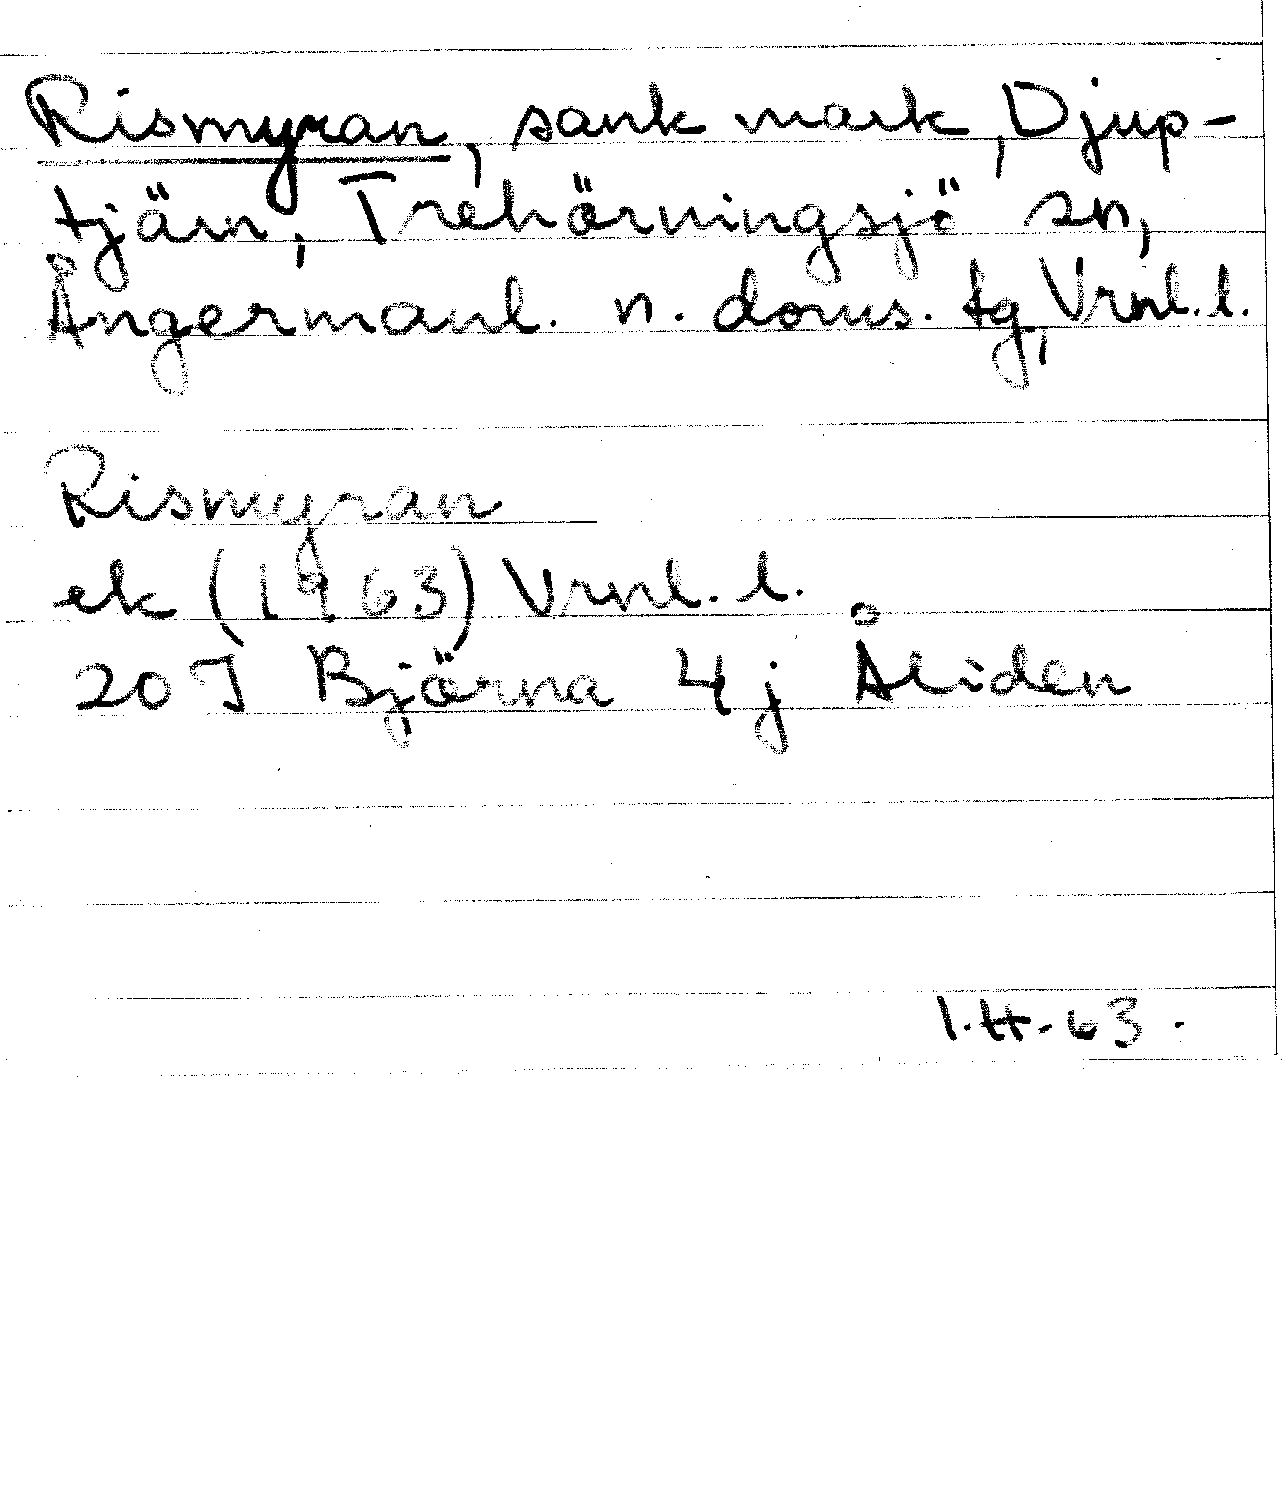 Rismyran, sank mark, Djup-
tjärn, Trehörningsjö sn,
Ångermanl. n. doms. tg, Vrnl. l.
Rismyran
ek (1963) Vrnl. l.
20 J Björna 4 j Åliden
I.H. 63.